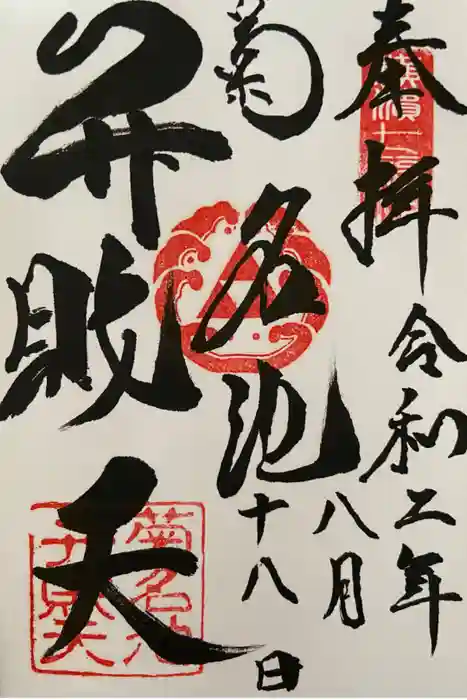 奉拝
令和二年
八月
十八日
菊名池
弁財天
菊名池
弁財天